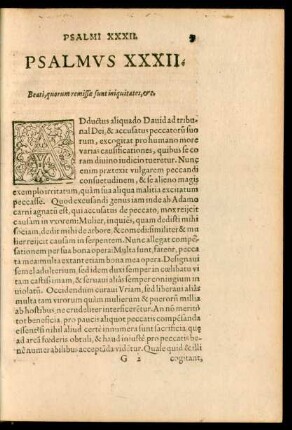 PSALMI XXXII.
PSALMVS XXXII.
Beati, quorum remissæ sunt iniquitates, &c.
ADductus aliquado Dauid ad tribu-
nal Dei, & accusatus peccatorũ suo
rum, excogitat pro humano more
varias causificationes, quibus se co
ram diuino iudicio tueretur. Nunc
enim prætexit vulgarem peccandi
consuetudinem, & se alieno magis
exemplo irritatum, quàm sua aliqua malitia excitatum
peccasse. Quod excusandi genus iam inde ab Adamo
carni agnatũ est, qui accusatus de peccato, mox reijcit
causam in vxorem: Mulier, inquiẽs, quam dedisti mihi
sociam, dedit mihi de arbore, & comedi: similiter & mu
lier reijcit causam in serpentem. Nunc allegat compẽ-
sationem per sua bona opera: Multa sunt, fatetur, pecca
ta mea: multa extant etiam bona mea opera. Designaui
semel adulterium, sed idem dixi semper in cubili viui
tam castissimam, & seruaui aliàs semper coniugium in
uiolatũ. Occidendum curaui Vriam, sed liberaui aliàs
multa tam virorum quàm mulierum & puerorũ millia
ab hostibus, ne crudeliter interficerẽtur. An nõ merito
tot beneficia, pro paucis aliquot peccatis compẽsanda
essent? si nihil aliud certè innumera sunt sacrificia, quę
ad arcã fœderis obtuli, & haud iniustè pro peccatis be-
nè numerabilibus acceptãda vidẽtur. Quale quid & illi
G 2 cogitant,